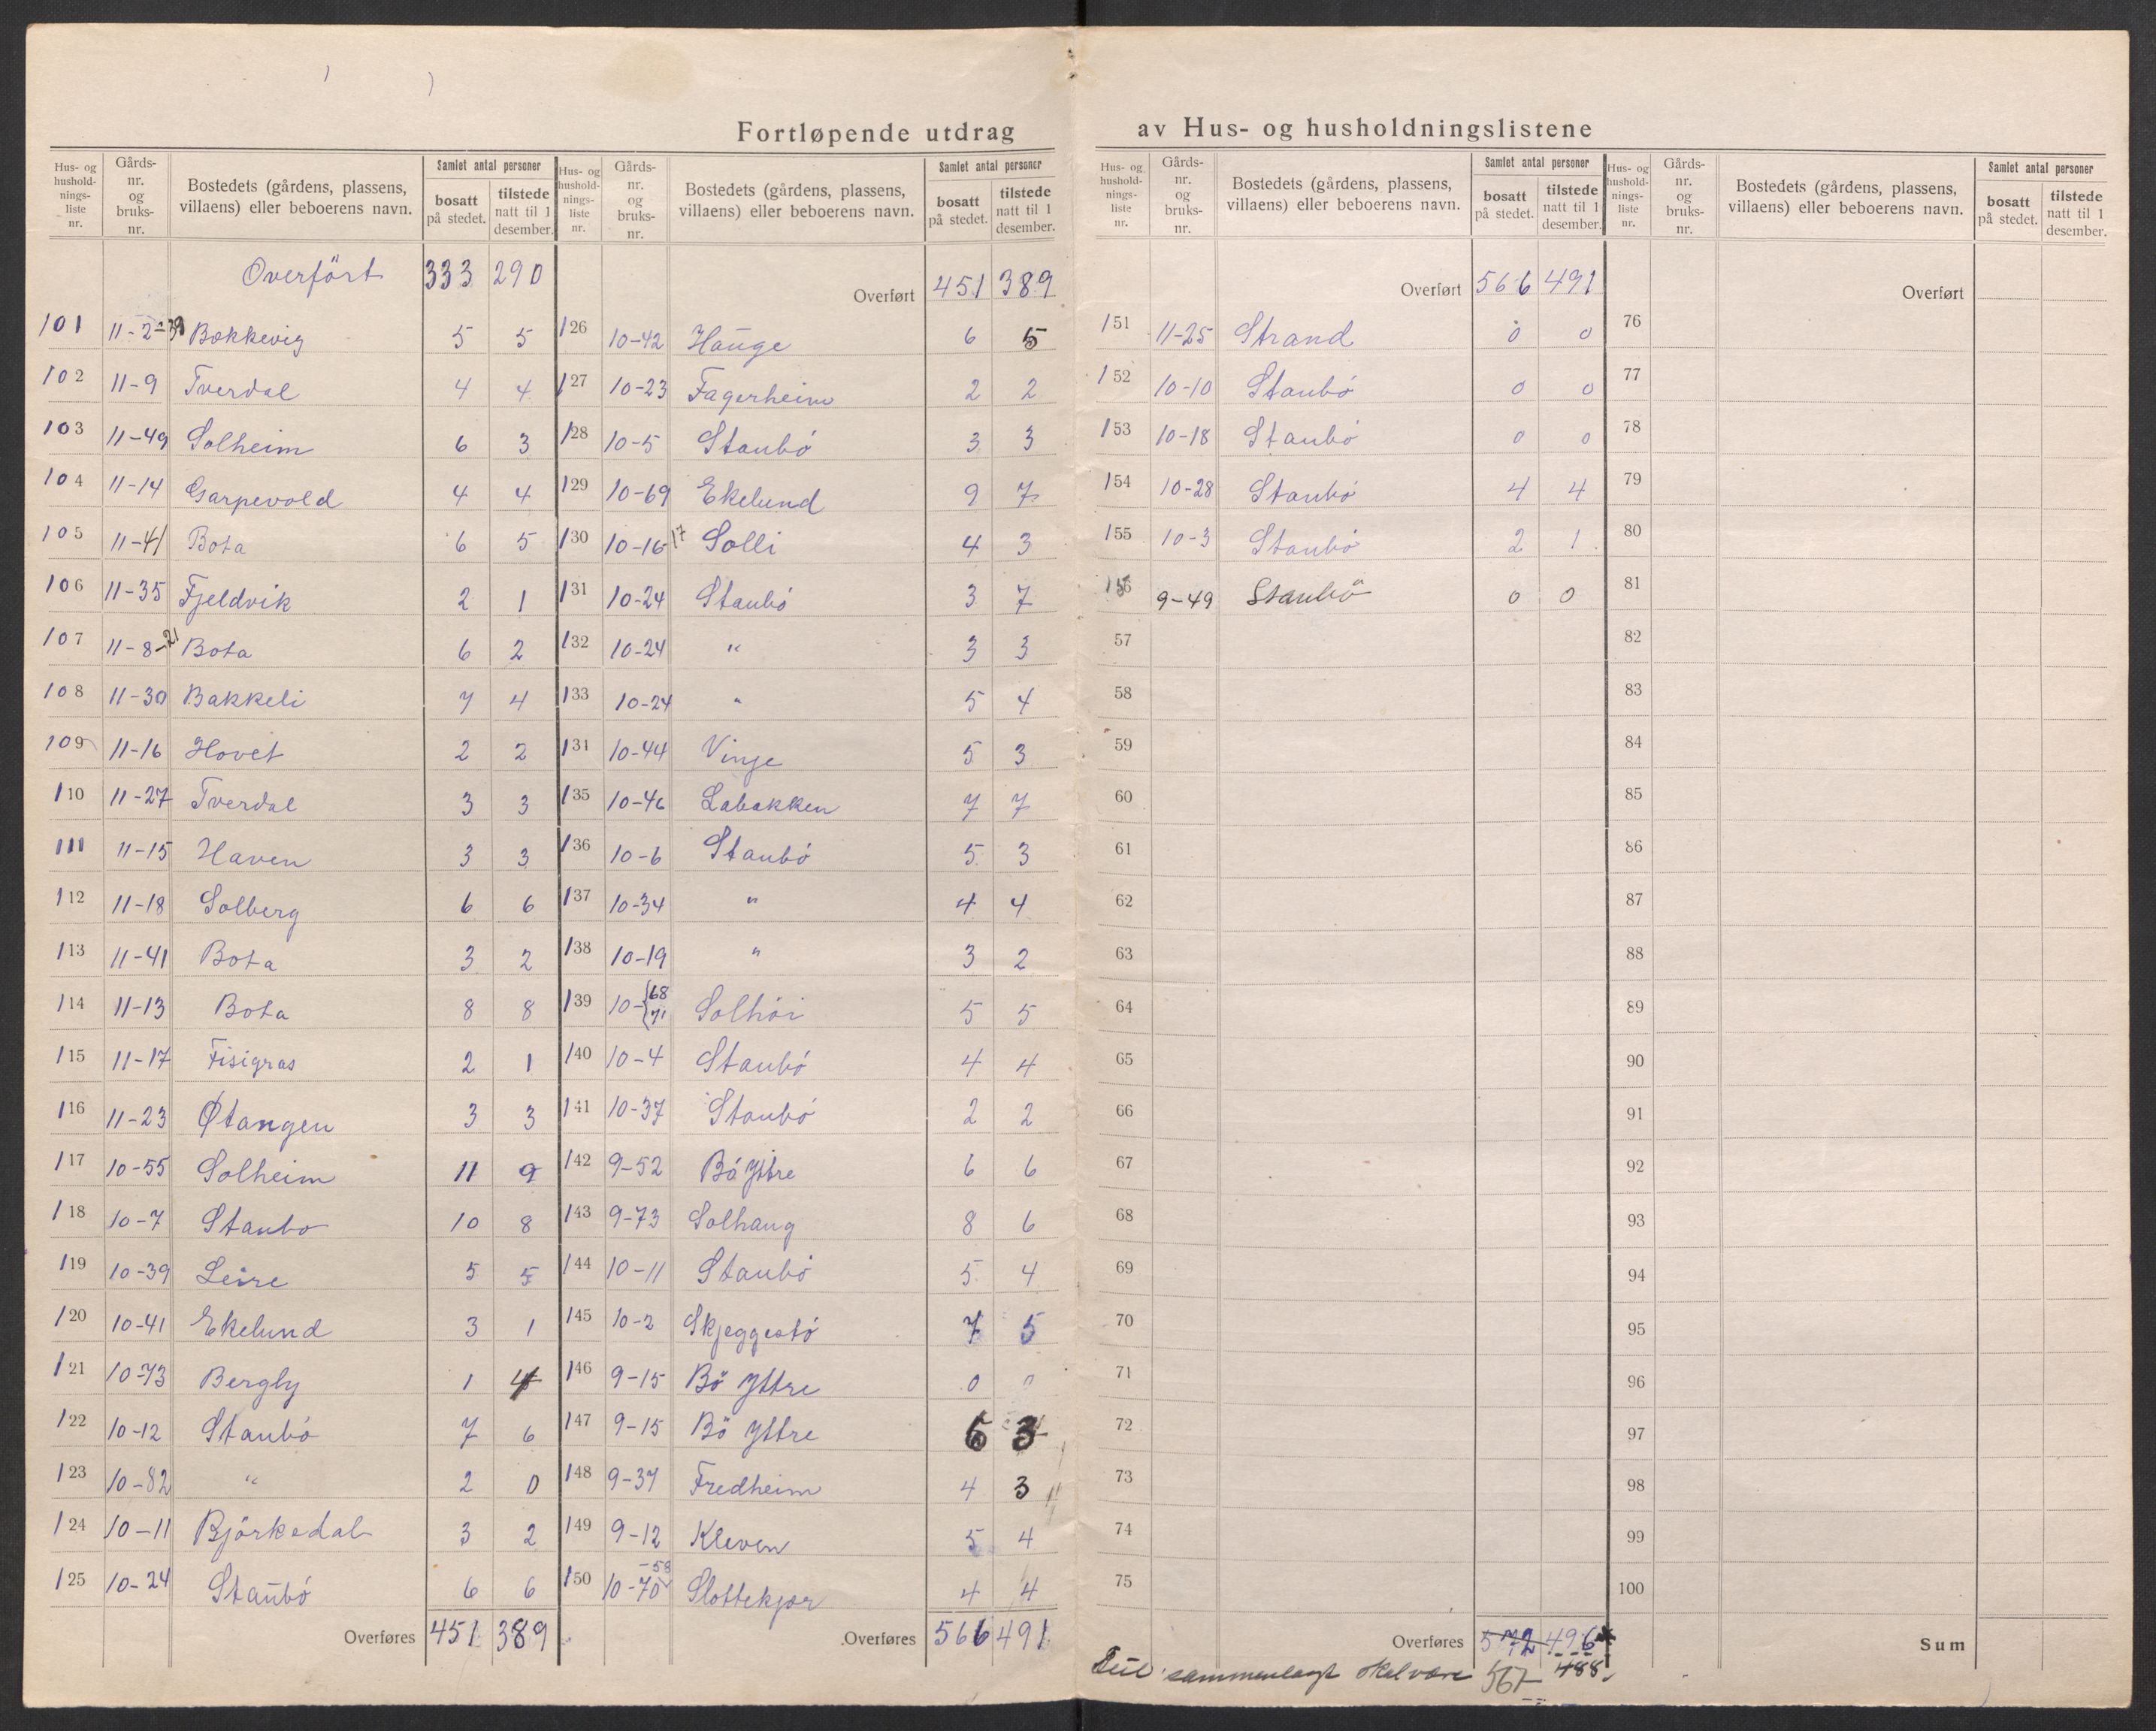 Fortløpende utdrag av Hus- og husholdningslistene
Hus- og husholdnings-liste nr. | Gårds-nr. og bruks-nr. | Bostedets (gårdens, plassens, villaens) eller beboerens navn. | Samlet antal personer bosatt på stedet. | tilstede natt til 1 desember.
Overfört 333 290
101 11-2-39 Bokkevig 5 5
102 11-9 Tverdal 4 4
103 11-49 Solheim 6 3
104 11-14 Garpevold 4 4
105 11-41 Bota 6 5
106 11-35 Fjeldvik 2 1
107 11-8-21 Bota 6 2
108 11-30 Bakkeli 7 4
109 11-16 Hovet 2 2
110 11-27 Tverdal 3 3
111 11-15 Haven 3 3
112 11-18 Solberg 6 6
113 11-41 Bota 3 2
114 11-13 Bota 8 8
115 11-17 Fisigras 2 1
116 11-23 Øtangen 3 3
117 10-55 Solheim 11 9
118 10-7 Staubo 10 8
119 10-39 Leire 5 5
120 10-41 Ekelund 3 1
121 10-73 Bergly 1 4
122 10-12 Staubö 7 6
123 10-82 " 2 0
124 10-11 Björkedal 3 2
125 10-24 Staubó 6 6
Overføres 451 389
Hus- og husholdnings-liste nr. | Gårds-nr. og bruks-nr. | Bostedets (gårdens, plassens, villaens) eller beboerens navn. | Samlet antal personer bosatt på stedet. | tilstede natt til 1 desember.
Overført 451 389
126 10-42 Hauge 6 5
127 10-23 Fagerheim 2 2
128 10-5 Staubó 3 3
129 10-69 Ekelund 9 7
130 10-16 17 Solli 4 3
131 10-24 Staubó 3 7
132 10-24 " 3 3
133 10-24 " 5 4
131 10-44 Vinje 5 3
135 10-46 Labakken 7 7
136 10-6 Staubó 5 3
137 10-34 " 4 4
138 10-19 " 3 2
139 10-{68 71 Solhöi 5 5
140 10-4 Staubó 4 4
141 10-37 Staubó 2 2
142 9-52 Bó Yttre 6 6
143 9-73 Solhaug 8 6
144 10-11 Staubó 5 4
145 10-2 Skjeggestó 7 5
146 9-15 Bö Yttre 0 0
147 9-15 Bö Yttre 6 3
148 9-37 Fredheim 4 3
149 9-12 Kleven 5 4
150 10-70 -58 Slottekjær 4 4
Overføres 566 491
Hus- og husholdnings-liste nr. | Gårds-nr. og bruks-nr. | Bostedets (gårdens, plassens, villaens) eller beboerens navn. | Samlet antal personer bosatt på stedet. | tilstede natt til 1 desember.
Overført 566 491
151 11-25 Strand 0 0
152 10-10 Staubó 0 0
153 10-18 Staubó 0 0
154 10-28 Staubó 4 4
155 10-3 Staubó 2 1
156 9-49 Staubö 0 0
57
58
59
60
61
62
63
64
65
66
67
68
69
70
71
72
73
74
75
Overføres 572 496
sammenlagt skal være 567 488
Hus- og husholdnings-liste nr. | Gårds-nr. og bruks-nr. | Bostedets (gårdens, plassens, villaens) eller beboerens navn. | Samlet antal personer bosatt på stedet. | tilstede natt til 1 desember.
Overført
76
77
78
79
80
81
82
83
84
85
86
87
88
89
90
91
92
93
94
95
96
97
98
99
100
Sum